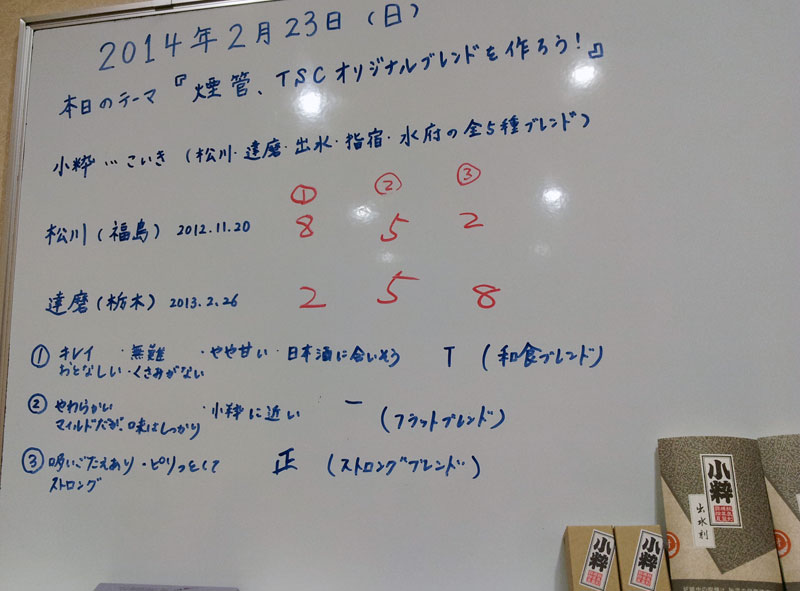 2014年2月23日(日)
本日のテーマ『煙管、TSCオリジナルブレンドを作ろう!』
小粋…こいき(松川・達磨・出水・指宿・水府の全5種ブレンド)
① ② ③
松川(福島) 2012.11.20 8 5 2
達磨(栃木) 2013.2.26 2 5 8
① キレイ ・無難 ・やや甘い ・日本酒に合いそう T (和食ブレンド)
おとなしい・くさみがない
② やわらかい ・小粋に近い 一 (フラットブレンド)
マイルドだが、味はしっかり
③ 吸いごたえあり・ピリっとくて 正 (ストロングブレンド)
ストロング
小粋
出水刻
小粋
小粋